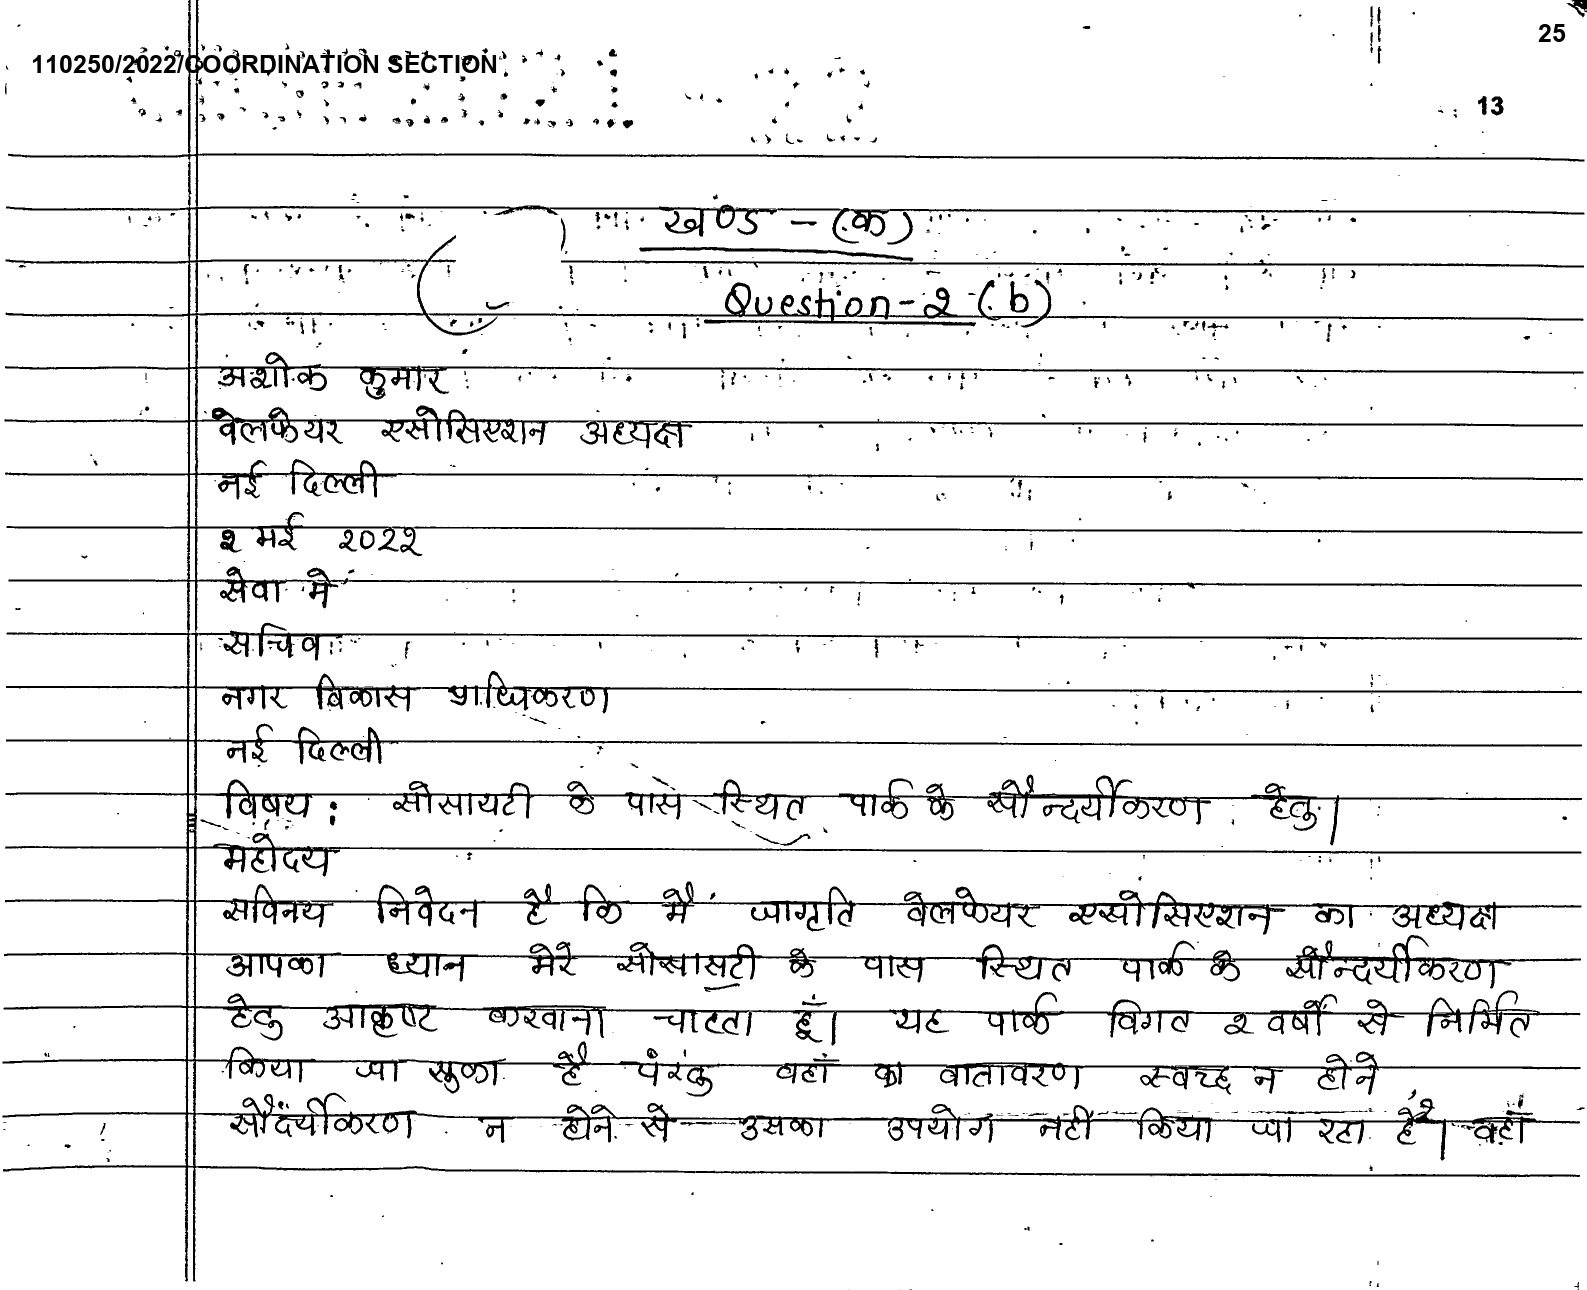 25
110250/2022/COORDINATION SECTION
13
खण्ड - (क)
Question-2 (b)
अशोक कुमार
वेलफेयर एसोसिएशन अध्यक्ष
नई दिल्ली
2 मई 2022
सेवा में
सचिव
नगर विकास प्राधिकरण
नई दिल्ली
विषय : सोसायटी के पास स्थित पार्क के सौन्दर्यीकरण हेतु।
महोदय
सविनय निवेदन है कि मैं जागृति वेलफेयर एसोसिएशन का अध्यक्ष
आपका ध्यान मेरे सोसासटी के पास स्थित पार्क के सौन्दर्यीकरण
हेतु आकृष्ट करवाना चाहता हूँ। यह पार्क विगत 2 वर्षों से निर्मित
किया जा चुका है परंतु वहाँ का वातावरण स्वच्छ न होने
सौंदर्यीकरण न होने से उसका उपयोग नहीं किया जा रहा है। वहाँ